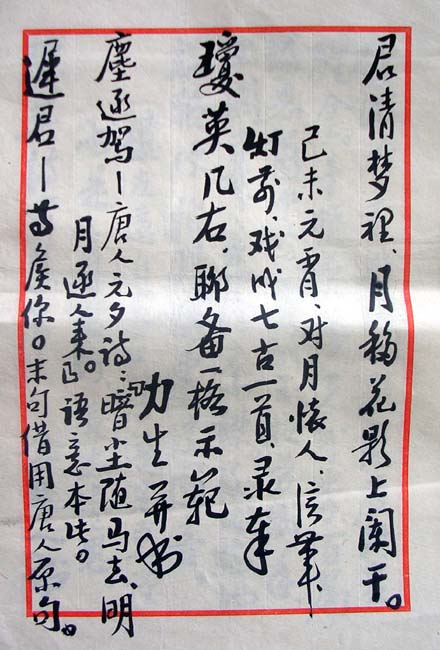 君清梦裡、月移花影上阑干。
己未元宵、对月懷人、信筆、
灯前、戏成七古一首、录奉
瓊英几右、聊备一格示範
生并书
塵逐驾—唐人元夕诗：「暗尘随马去、明
月逐人来。」语意本此。
遲君—等候你。末句借用唐人原句。